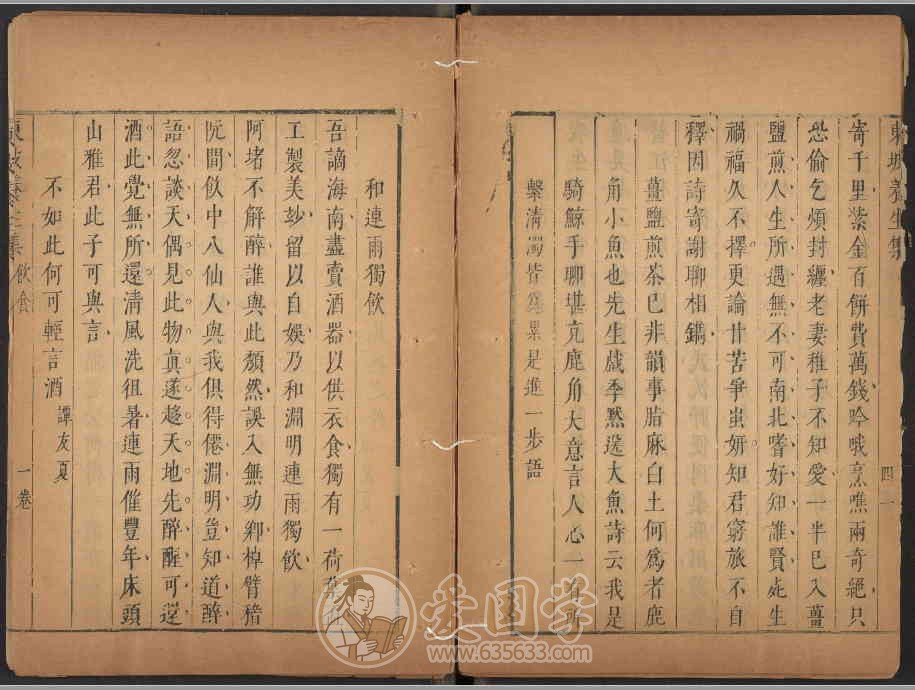 東坡養生集
四一
寄千里紫金百餅費萬錢吟哦烹噍兩奇絕只
恐偷乞煩封纏老妻稚子不知愛一半已入薑
鹽煎人生所遇無不可南北嗜好知誰賢死生
禍福久不擇更論甘苦爭蚩妍知君窮旅不自
釋因詩寄謝聊相鐫
薑鹽煎茶已非韻事脂麻白土何爲者鹿
角小魚也先生戲季黙送大魚詩云我是
騎鯨手聊堪亢鹿角大意言人心一有所
繫清濁皆 累是進一步語
和連雨獨飲
吾謫海南盡賣酒器以供衣食獨有一荷葉
工製美玅留以自娛乃和淵明連雨獨飲
阿堵不解醉誰與此頹然誤入無功鄉掉臂嵇
阮間飲中八仙人與我俱得僊淵明豈知道醉
語忽談天偶見此物真遂超天地先醉醒可還
酒此覺無所還清風洗徂暑連雨催豐年床頭
山雅君此子可與言
不如此何可輕言酒 譚友夏
東坡養生集 飲食
一卷
爱国学
www.635633.com